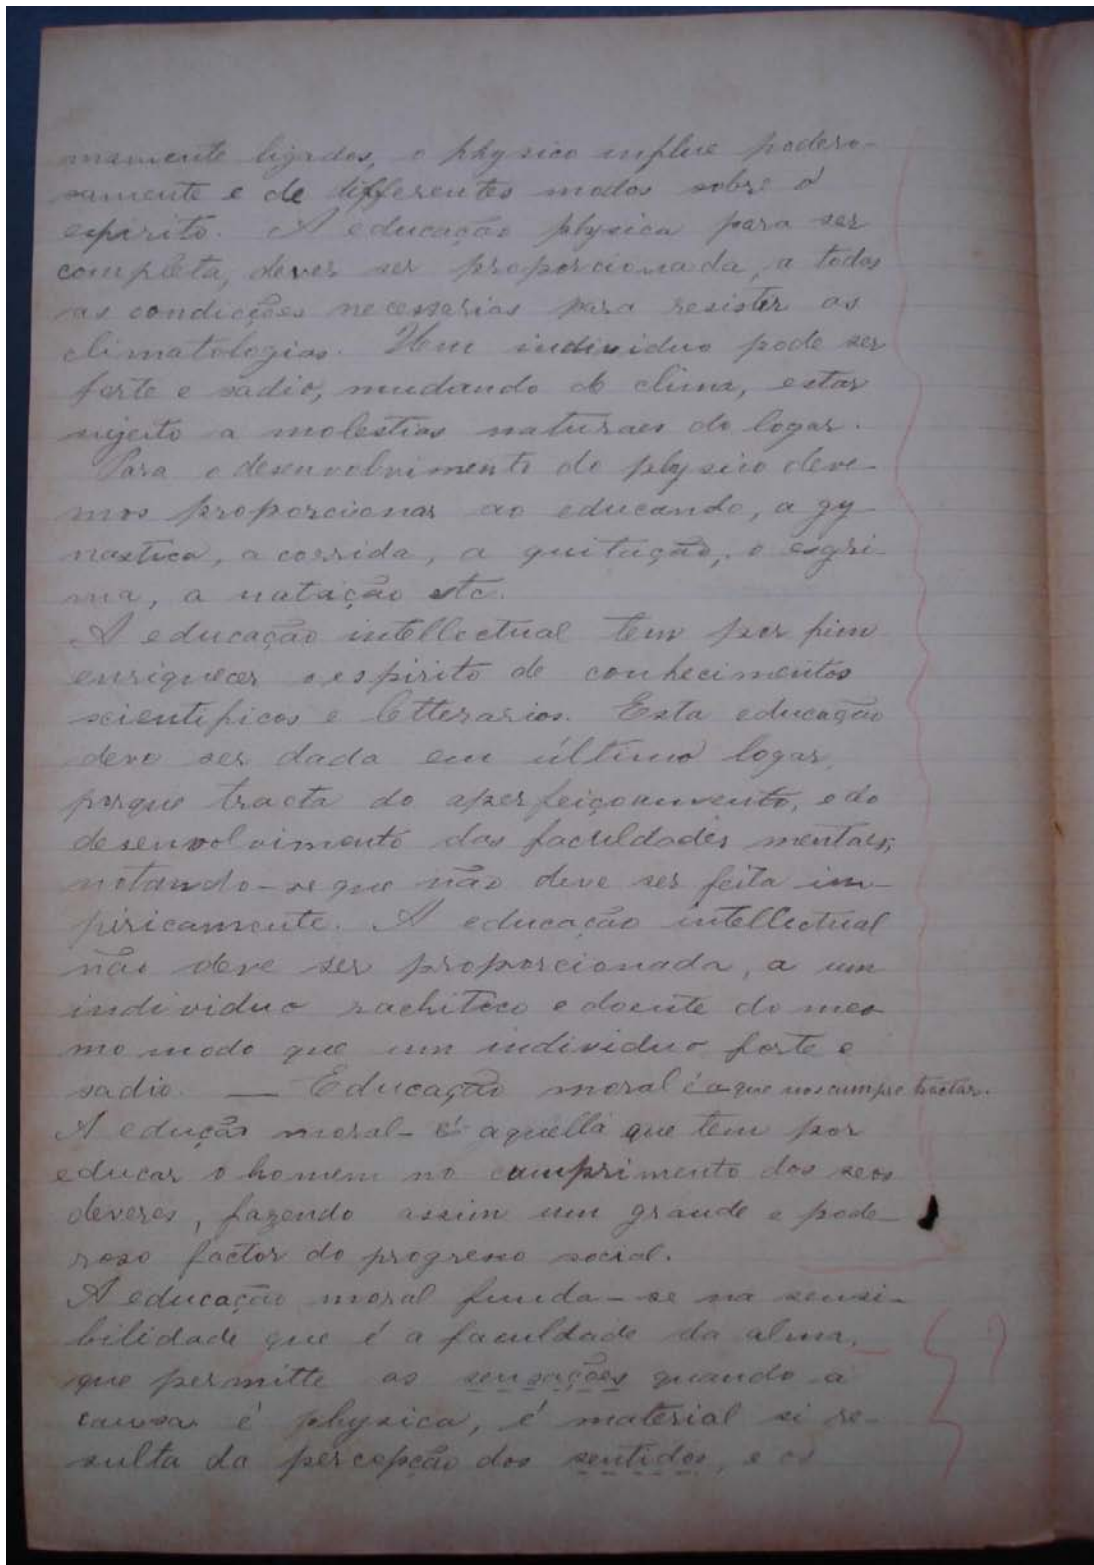 mamente ligados, o physico influe podero-
samente e de differentes modos sobre o
espirito. A educação physica para ser
completa, dever ser proporcionada, a todas
as condicções necessarias para resister as
climatologias. Um individuo pode ser
forte e sadio, mudando de clima, estar
sujeito a molestias naturaes do logar.
Para o desenvolvimento do physico deve-
mos proporcionar ao educando, a gy-
nastica, a corrida, a quitação, o esgri-
ma, a natação etc.
A educação intellectual tem por fim
enriquecer o espirito de conhecimentos
scientificos e letterarios. Esta educação
deve ser dada em último logar,
porque tracta do aperfeiçoamento, e do
desenvolvimento das faculdades mentaes;
notando-se que não deve ser feita im-
piricamente. A educação intellectual
não deve ser proporcionada, a um
individuo rachitico e doente do mes
mo modo que um individuo forte e
sadio. — Educação moral é a que nos cumpre tractar.
A edução moral- é aquella que tem por
educar o homem no cumprimento dos seos
deveres, fazendo assim um grande e pode-
roso factor do progresso social.
A educação moral funda-se na sensi-
bilidade que é a faculdade da alma,
que permitte as sensações quando a
causa é physica, é material si re-
sulta da percepção dos sentidos, e os